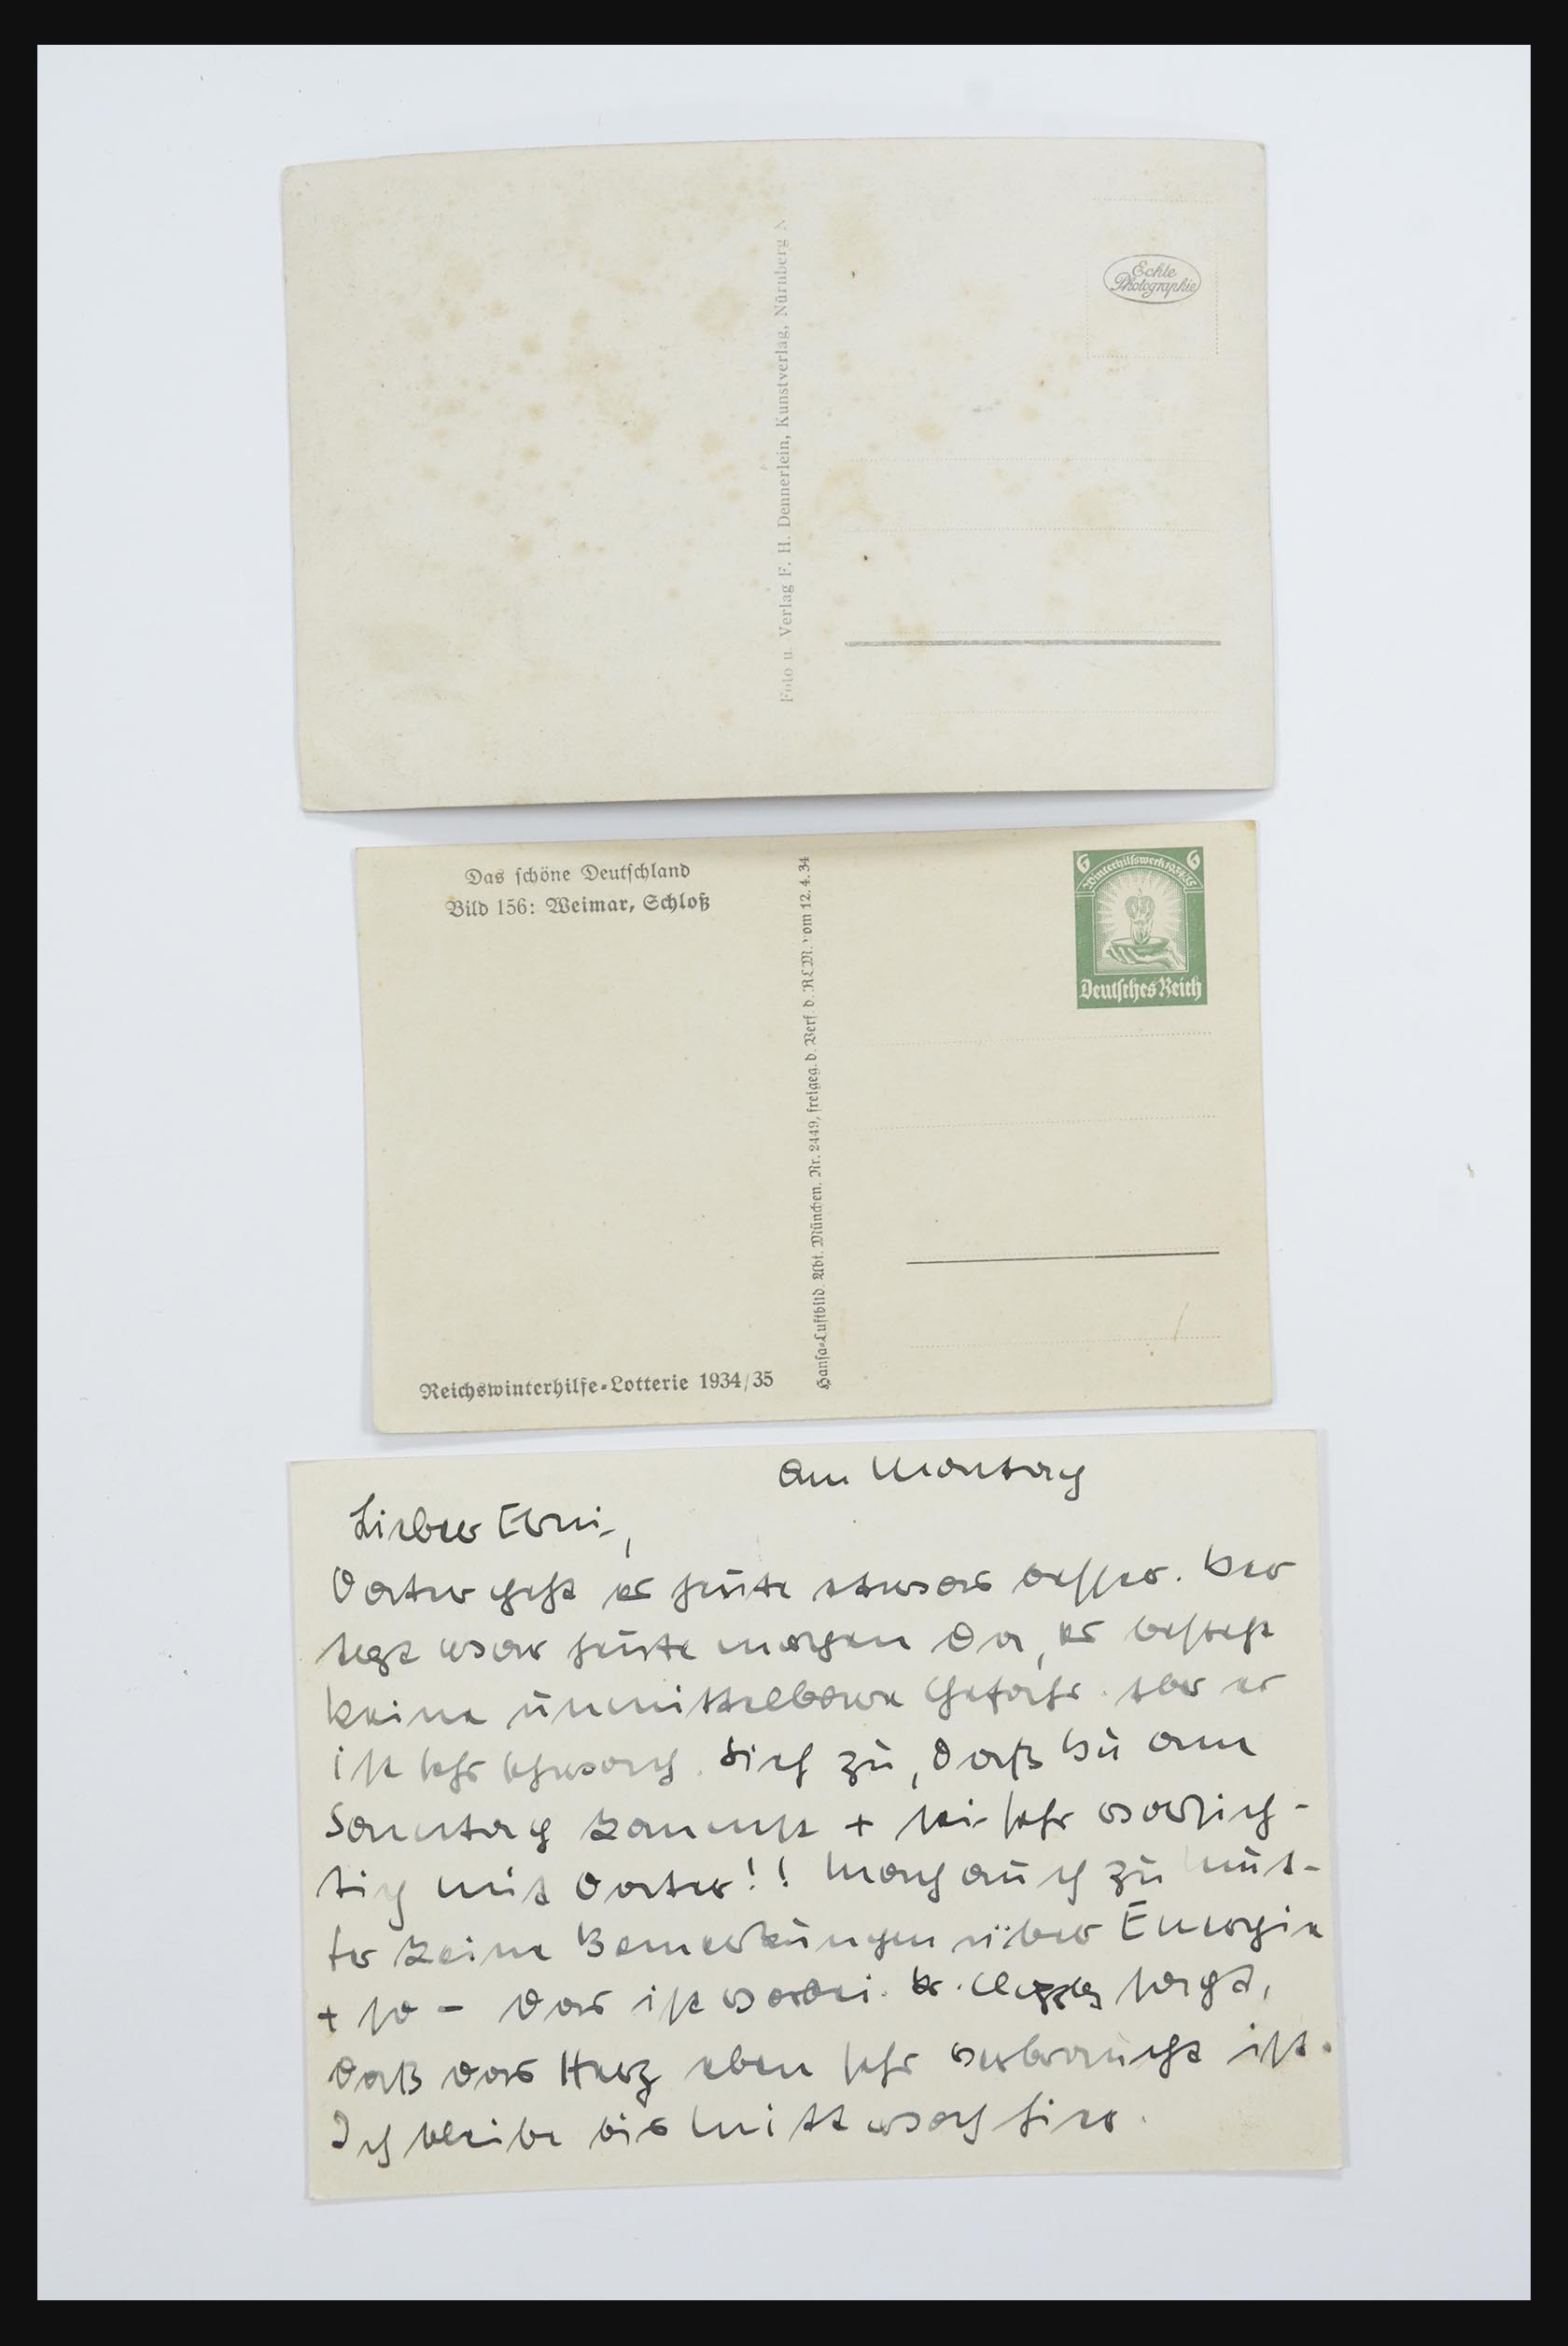 Foto u. Verlag F. H. Dennerlein, Kunstverlag, Nürnberg
Echte
Photographie
Das schöne Deutschland
Bild 156: Weimar, Schloß
Reichswinterhilfe-Lotterie 1934/35
Hansa-Luftbild. Abt. München. Nr. 2449, freigeg. d. Verf. d. RLM. vom 12.4.34
6 Winterhilfswerk 1934/35 6
Deutsches Reich
Am Montag
Lieber Erni,
Vater geht es heute etwas besser. Der
war heute morgen da, es besteht
keine unmittelbare Gefahr. Aber er
ist sehr schwach. Sieh zu, daß Du am
Sonntag kommst + sei sehr vorsich-
tig mit Vater!! Mach auch zu Mut-
ter keine Bemerkungen über Energie
+ so – das ist vorbei. Dr. sagt,
daß das Herz eben sehr verbraucht ist.
Ich bleibe bis Mittwoch hier.